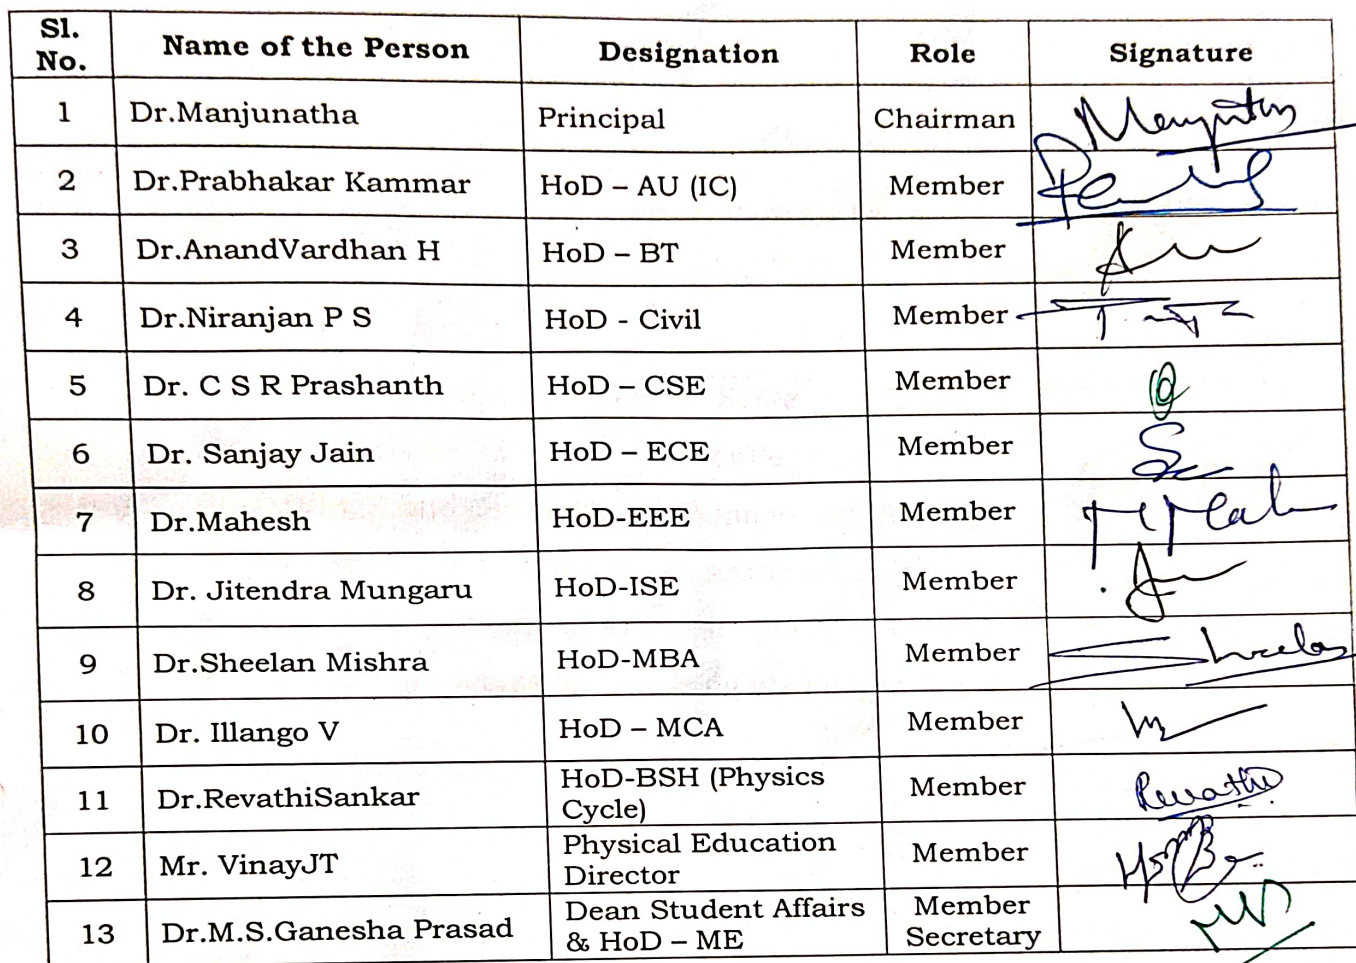 Sl. No. Name of the Person Designation Role Signature
1 Dr.Manjunatha Principal Chairman
2 Dr.Prabhakar Kammar HoD – AU (IC) Member
3 Dr.AnandVardhan H HoD – BT Member
4 Dr.Niranjan P S HoD - Civil Member
5 Dr. C S R Prashanth HoD – CSE Member
6 Dr. Sanjay Jain HoD – ECE Member
7 Dr.Mahesh HoD-EEE Member
8 Dr. Jitendra Mungaru HoD-ISE Member
9 Dr.Sheelan Mishra HoD-MBA Member
10 Dr. Illango V HoD – MCA Member
11 Dr.RevathiSankar HoD-BSH (Physics Cycle) Member Revathi
12 Mr. VinayJT Physical Education Director Member
13 Dr.M.S.Ganesha Prasad Dean Student Affairs & HoD – ME Member Secretary